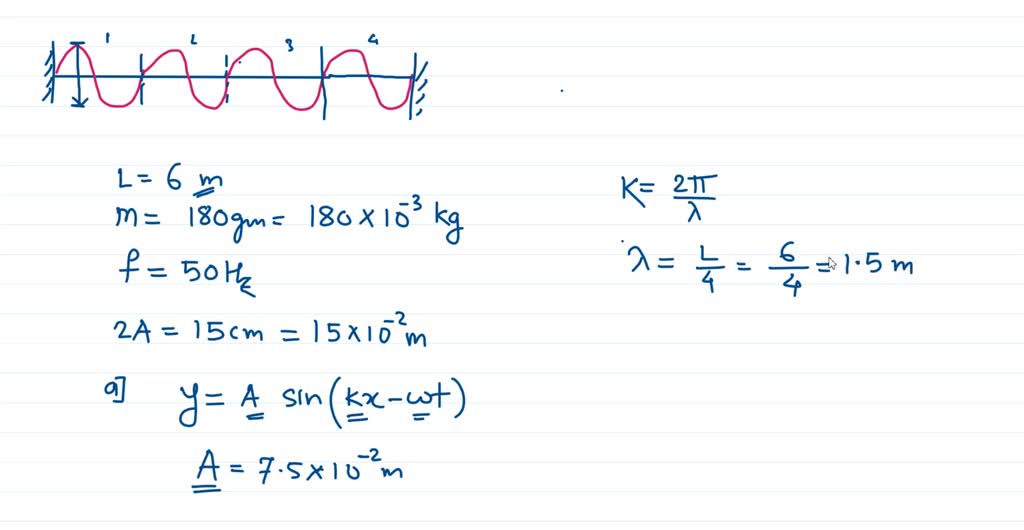 1 2 3 4
L = 6 m
m = 180gm = 180 × 10⁻³ kg
f = 50 Hz
2A = 15 cm = 15 × 10⁻² m
a] y = A sin(kx - ωt)
A = 7.5 × 10⁻² m
K = 2π/λ
λ = L/4 = 6/4 = 1.5 m